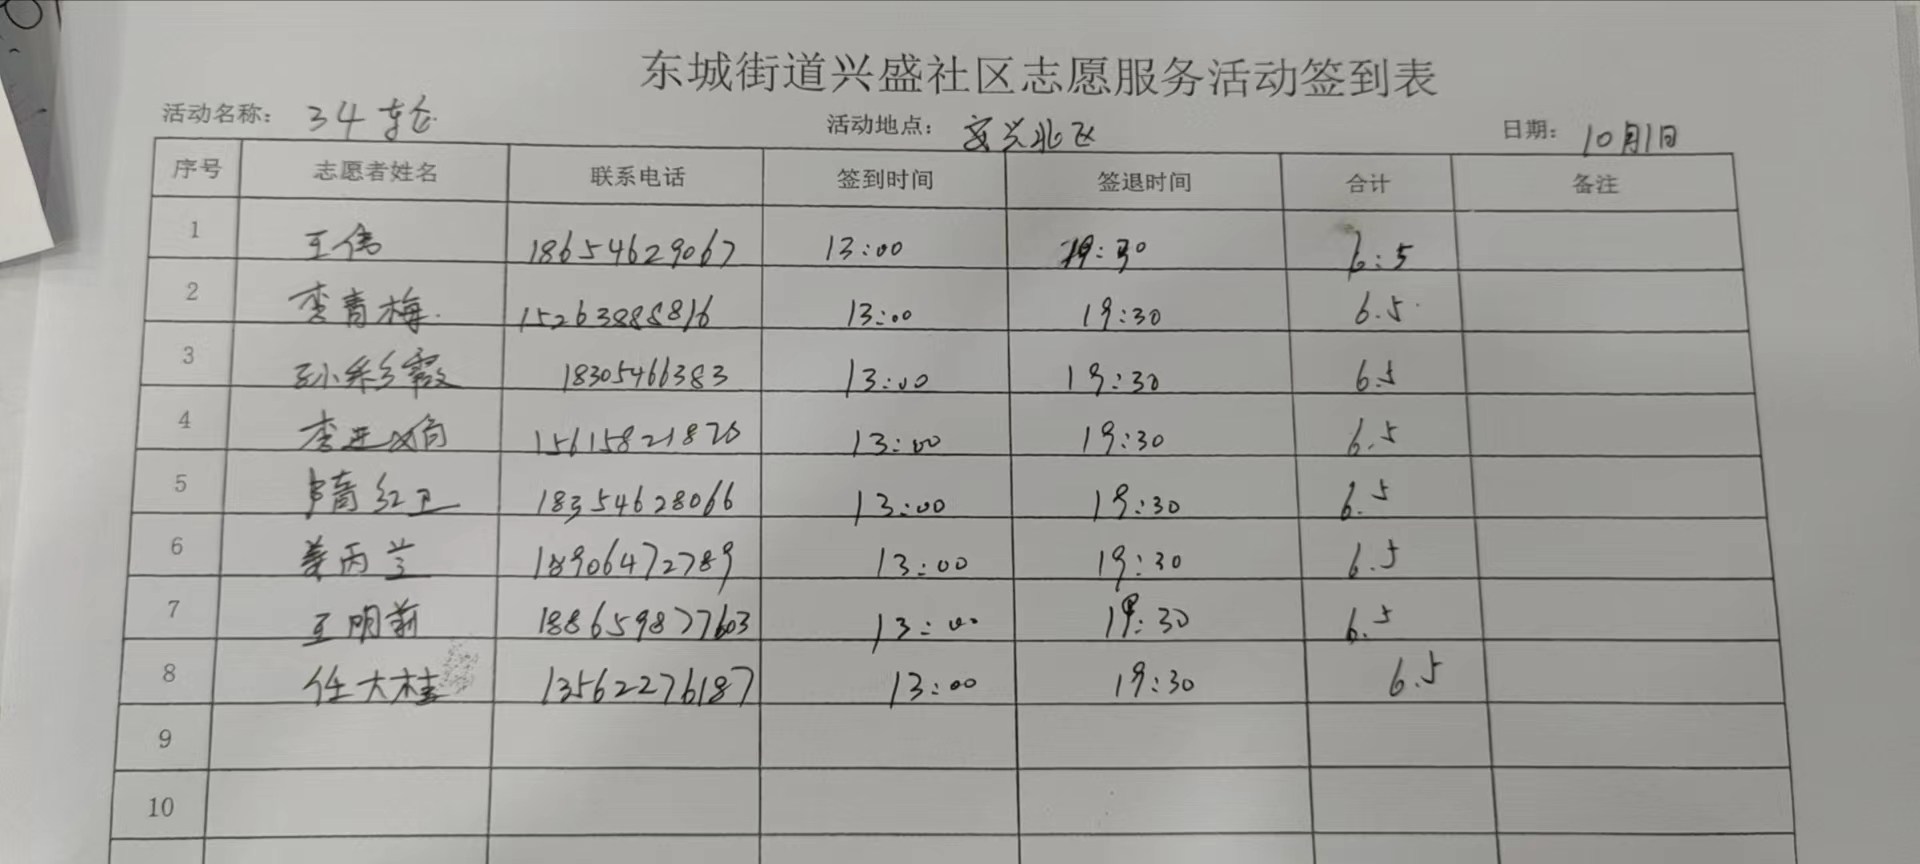 东城街道兴盛社区志愿服务活动签到表
活动名称： 34轮 活动地点： 安兴北区 日期： 10月1日
序号 志愿者姓名 联系电话 签到时间 签退时间 合计 备注
1 王伟 18654629067 13:00 19:30 6:5
2 李青梅 15263888816 13:00 19:30 6.5
3 孙彩霞 18305466383 13:00 19:30 6.5
4 李进 13:00 19:30 6.5
5 隋红卫 18354628066 13:00 19:30 6.5
6 姜丙兰 18906472789 13:00 19:30 6.5
7 王明前 188659877603 13:00 19:30 6.5
8 任大桂 13562276187 13:00 19:30 6.5
9
10